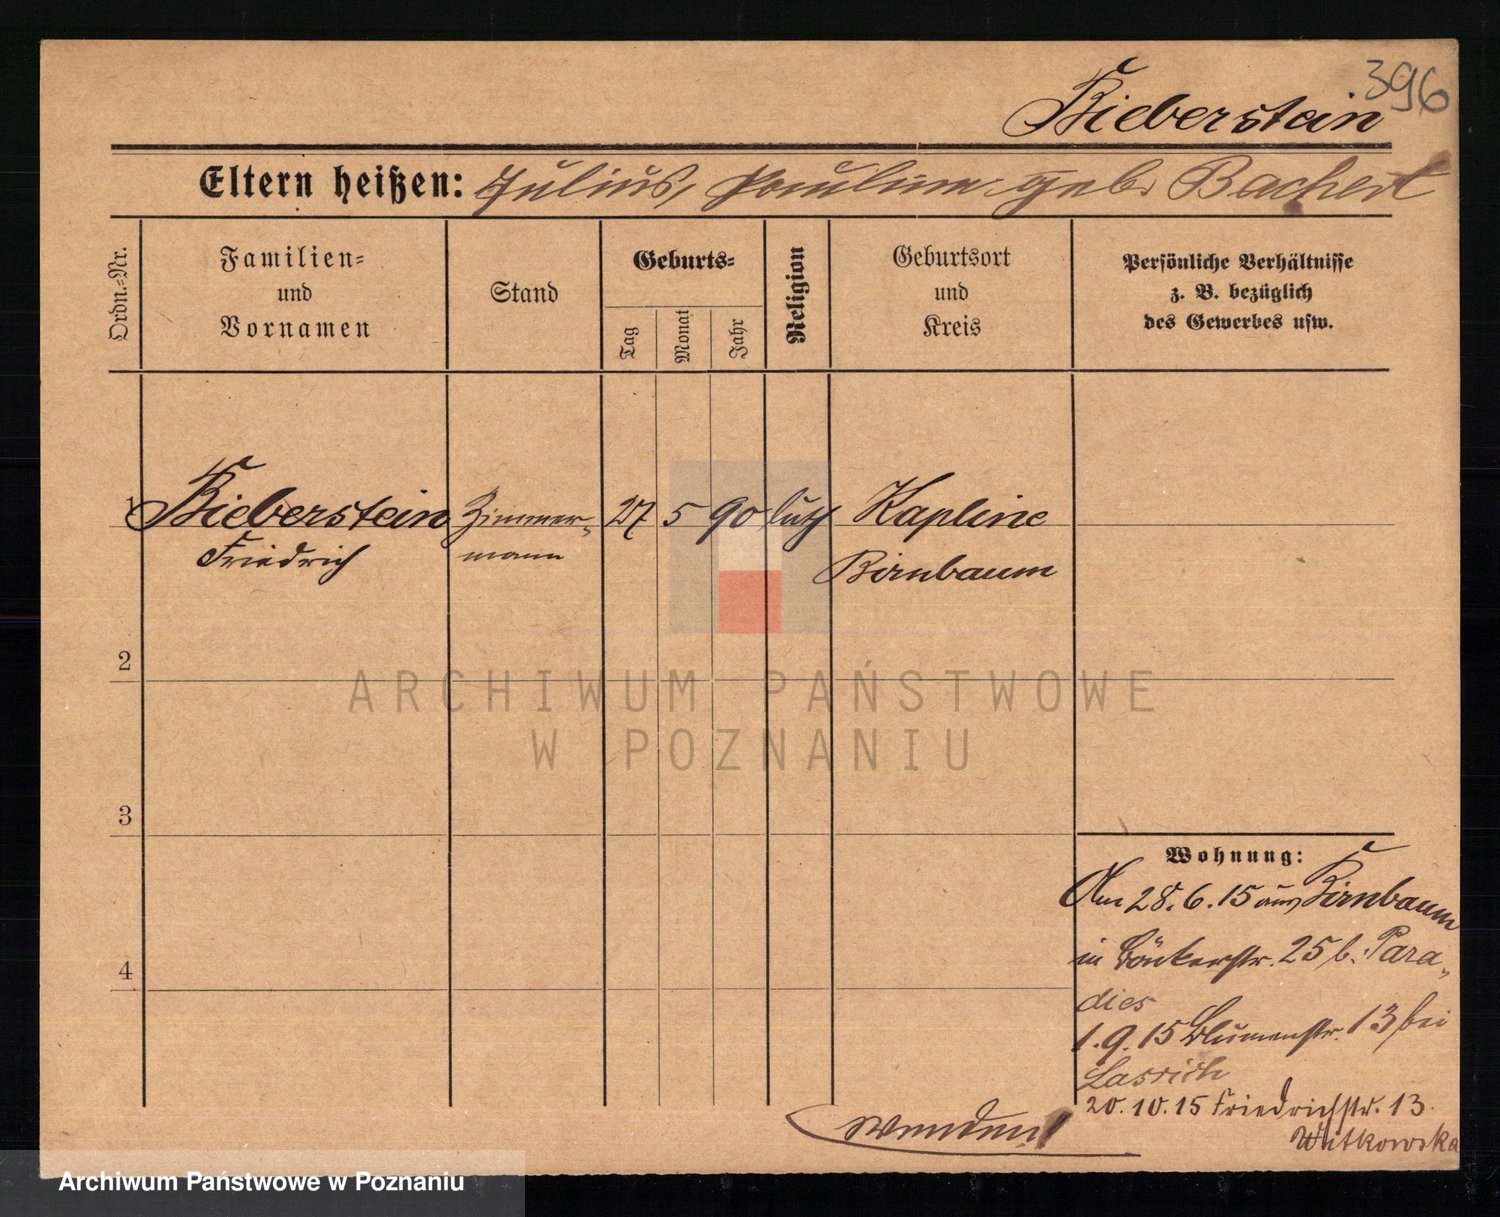 396
Bieberstein
Eltern heißen: Julius, Pauline geb. Bachert
Ordn.-Nr.
Familien-
und
Vornamen
Stand
Geburts-
Tag
Monat
Jahr
Religion
Geburtsort
und
Kreis
Persönliche Verhältnisse
z. B. bezüglich
des Gewerbes usw.
1 Bieberstein Zimmer- 27 5 90 luth Kapline
Friedrich mann Birnbaum
2
ARCHIWUM PAŃSTWOWE
W POZNANIU
3
Wohnung:
Am 28.6.15 aus Birnbaum
in Bäckerstr. 25 b. Para-
dies
1.9.15 Blumenstr. 13 bei
4
20.10.15 Friedrichstr. 13.
Witkowska
Wenden!
Archiwum Państwowe w Poznaniu